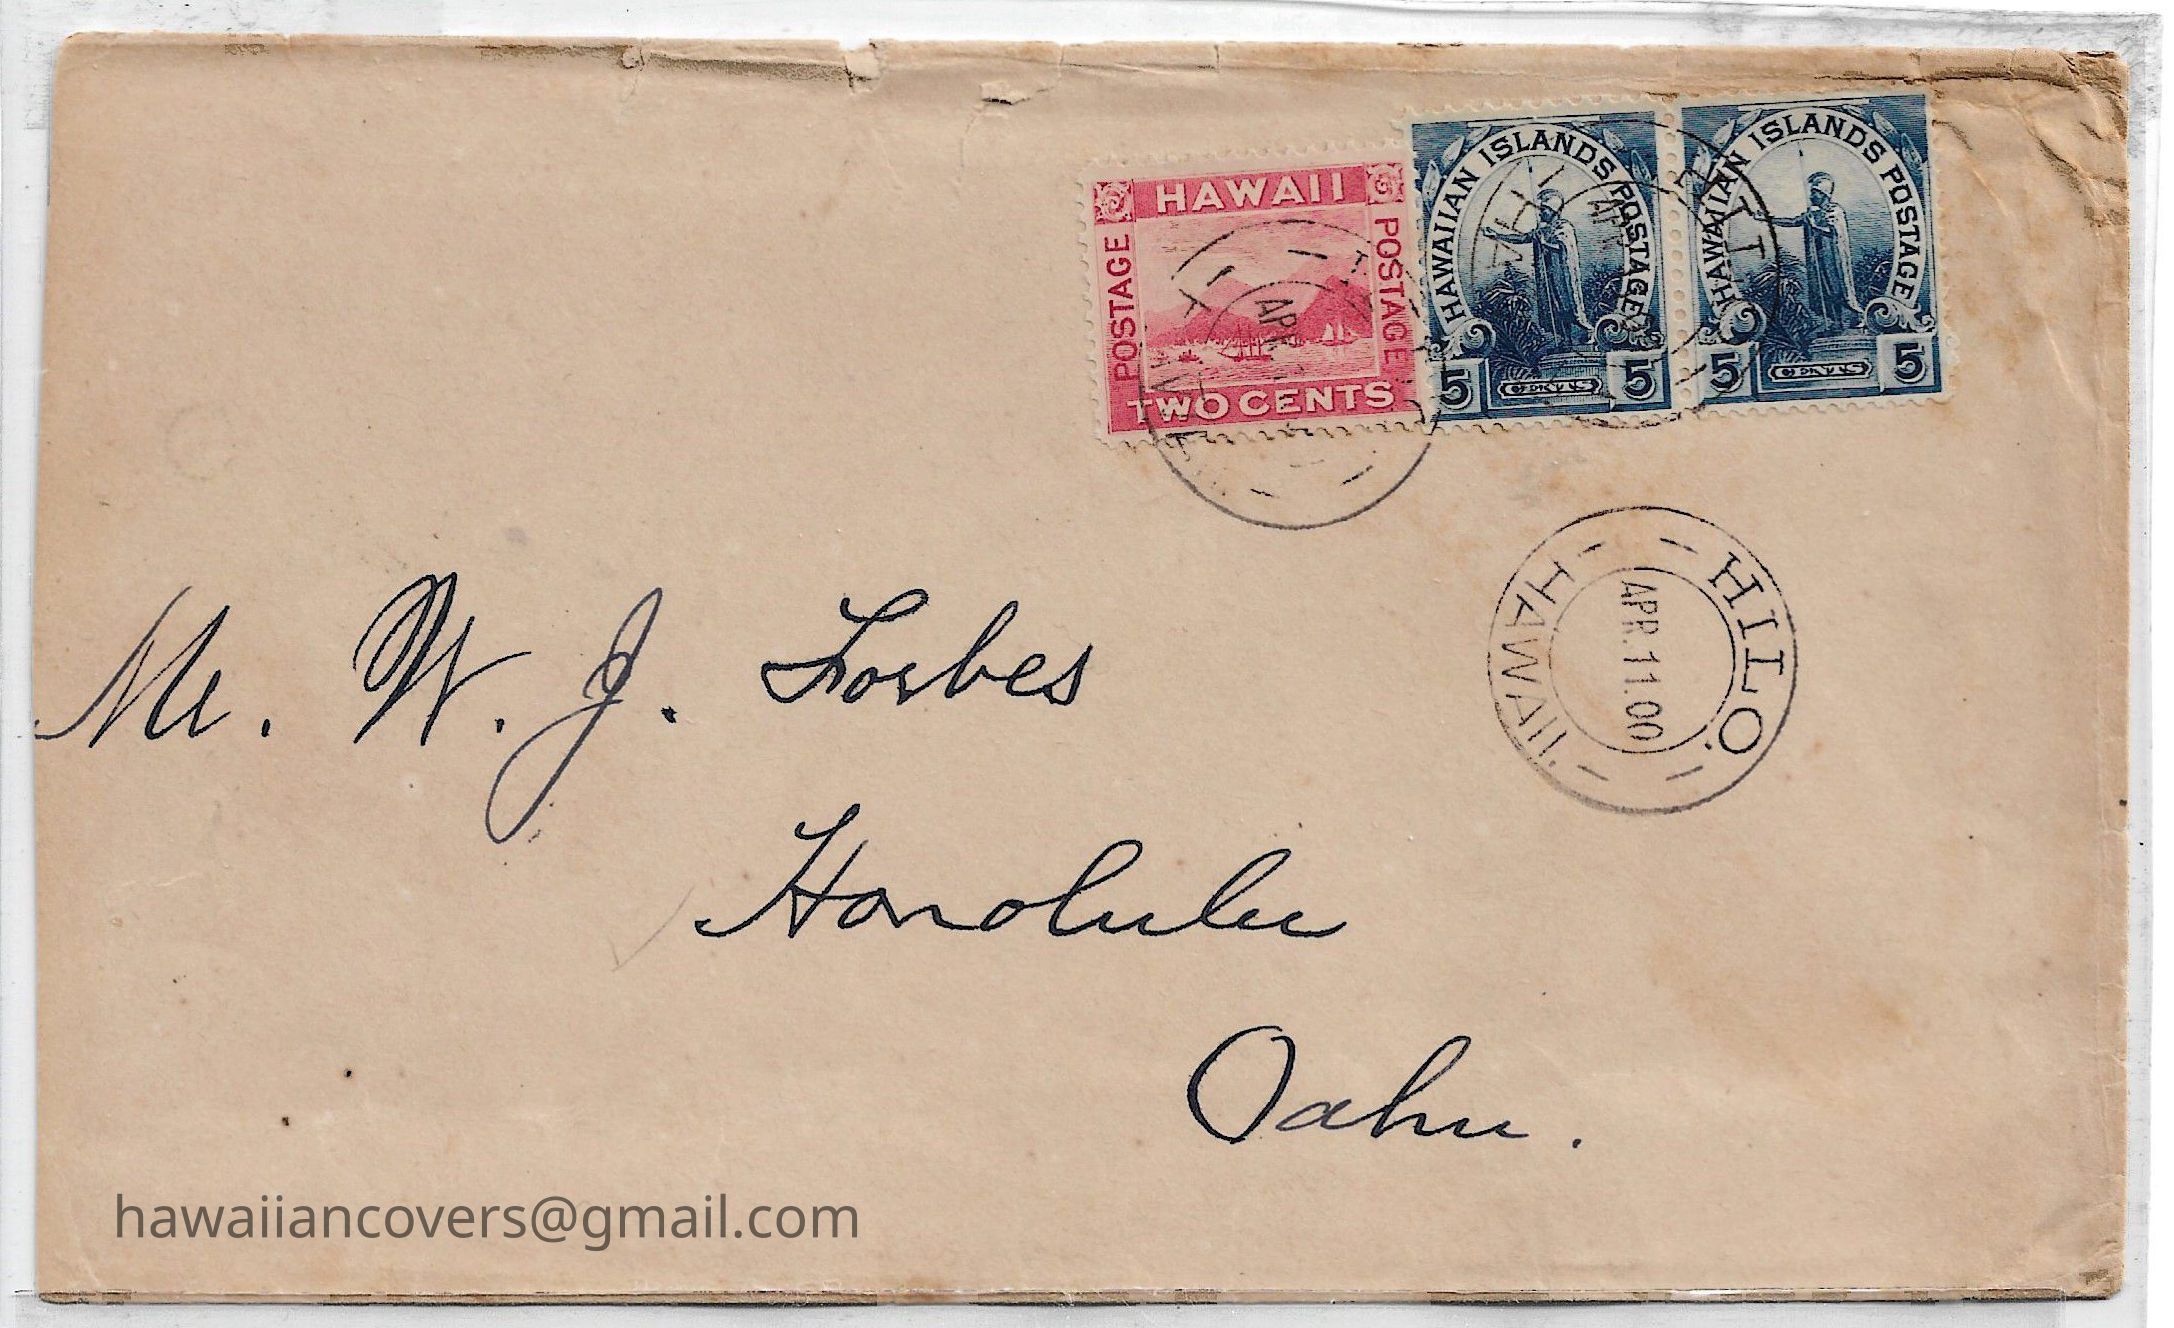 HAWAII
POSTAGE
POSTAGE
TWO CENTS
HAWAIIAN ISLANDS POSTAGE
5 CENTS 5
HAWAIIAN ISLANDS POSTAGE
5 CENTS 5
HILO.
APR.11.00
HAWAII.
Mr. W. J. Forbes
Honolulu
Oahu.
hawaiiancovers@gmail.com